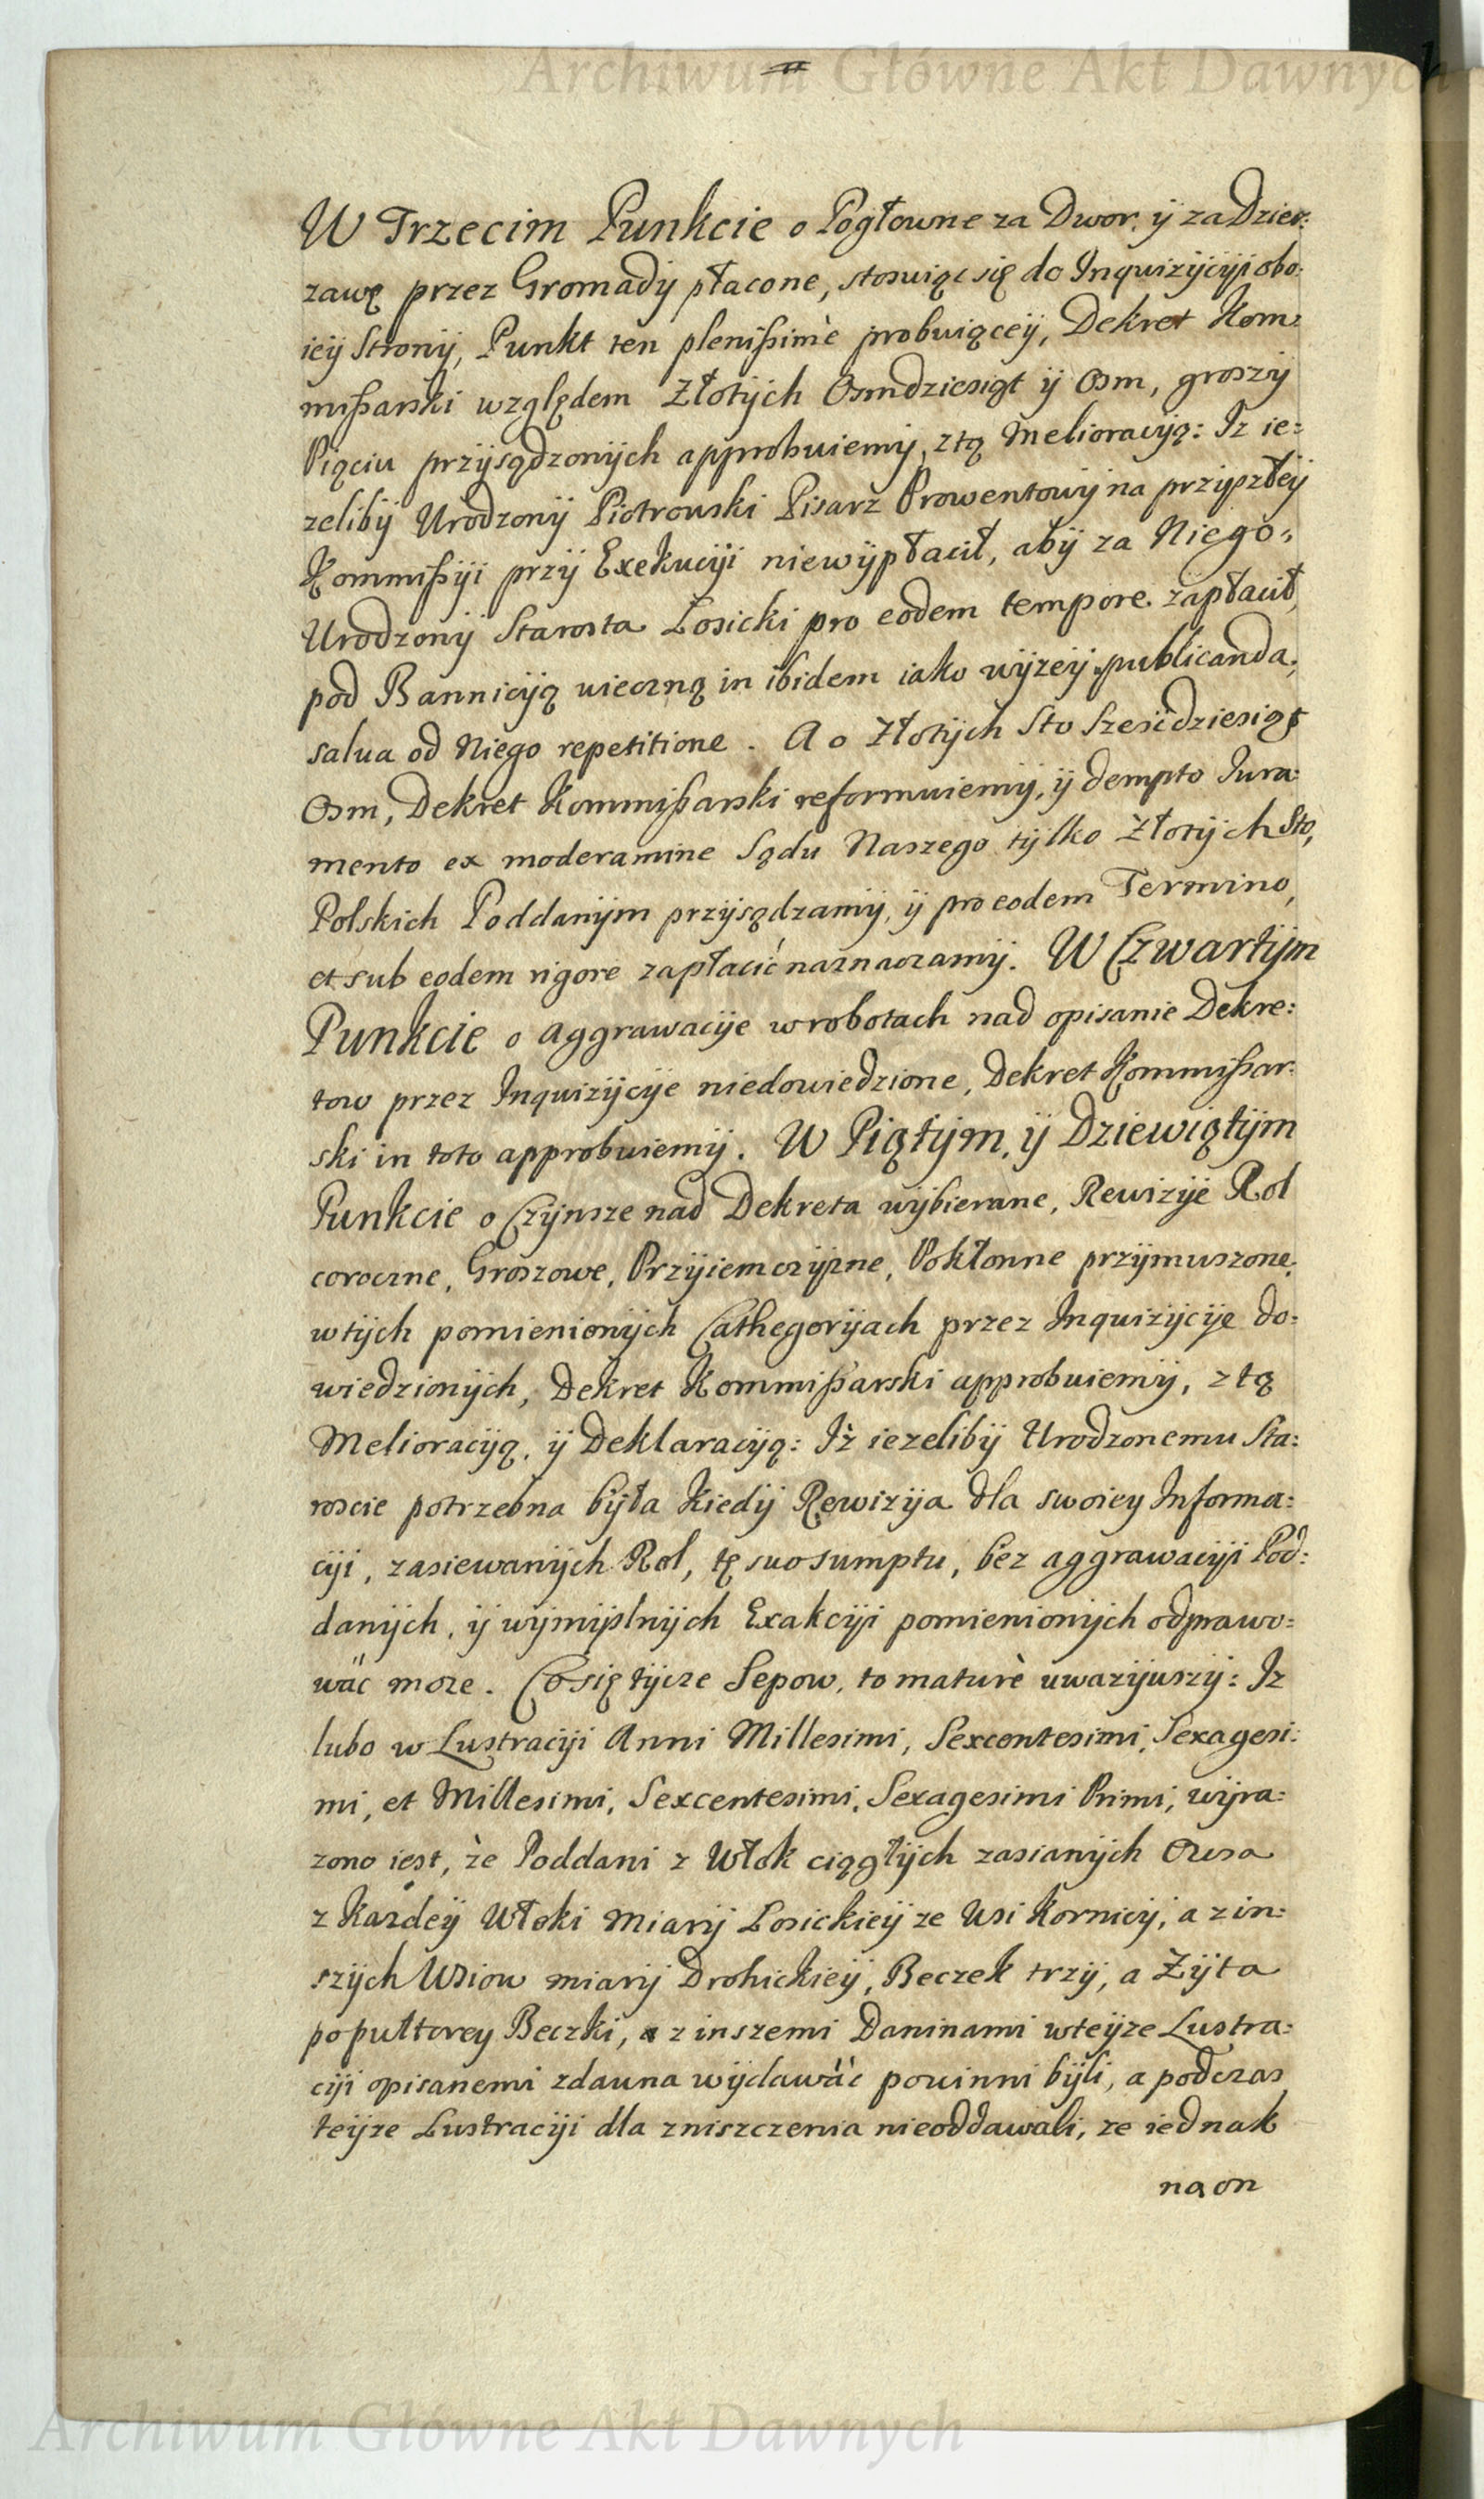 Archiwum Główne Akt Dawnych
W Trzecim Punkcie o Pogłowne za Dwor, ÿ za Dzier:
zawę przez Gromadÿ płacone, stosuiąc się do Inquizÿcÿi obo:
ieÿ Stronÿ, Punkt ten plenißimè probuiąceÿ, Dekret Kom:
mißarski względem Złotÿch Osmdziesiąt ÿ Osm, groszÿ
Pięciu przÿsądzonÿch approbuiemÿ, z tą Melioracÿą: Iz ie:
zelibÿ Urodzonÿ Piotrouski Pisarz Prowentowÿ na przÿszłeÿ
Kommißÿi przÿ Exekucÿi niewÿpłacił, abÿ za Niego,
Urodzonÿ Starosta Łosicki pro eodem tempore zapłacił,
pod Bannicÿą uieczną in ibidem iako wÿzeÿ publicanda,
salua od Niego repetitione. A o Złotÿch Sto Sześćdziesiąt
Osm, Dekret Kommißarski reformuiemÿ, ÿ dempto Iura:
mento ex moderamine Sądu Naszego tÿlko Złotÿch Sto,
Polskich Poddanÿm przÿsądzamÿ, ÿ pro eodem Termino,
et sub eodem rigore zapłacić naznaczamÿ. W Czwartÿm
Punkcie o Aggrawacÿe w robotach nad opisanie Dekre:
tow przez Inquizÿcÿe niedouiedzione, Dekret Kommißar:
ski in toto approbuiemÿ. W Piątÿm, ÿ Dziewiątÿm
Punkcie o Czÿnsze nad Dekreta wÿbierane, Rewizÿe Rol
coroczne, Groszowe, Przÿiemczÿzne, Pokłonne przÿmuszone,
w tÿch pomienionÿch Cathegorÿach przez Inquizÿcÿe do:
wiedzionÿch, Dekret Kommißarski approbuiemÿ, z tą
Melioracÿą, ÿ Deklaracÿą: Iż iezelibÿ Urodzonemu Sta:
roscie potrzebna bÿła kiedÿ Rewizÿa dla swoiey Informa:
cÿi, zasiewanÿch Rol, tę suo sumptu, bez aggrawacÿi Pod:
danÿch, ÿ wÿmÿslnÿch Exakcÿi pomienionÿch odprawo:
wać moze. Co się tÿcze Sepow, to maturè uwazÿuszÿ: Iz
lubo w Lustracÿi Anni Millesimi, Sexcentesimi, Sexagesi:
mi, et Millesimi, Sexcentesimi, Sexagesimi Primi, wÿra:
zono iest, że Poddani z Włok ciągłÿch zasianÿch Owsa
z Kazdeÿ Włoki Miarÿ Łosickieÿ ze Wsi Kornicÿ, a z in:
szÿch Wsiow miarÿ Drohickieÿ, Beczek trzÿ, a Zÿta
po pułtorey Beczki, a z inszemi Daninami w teÿze Lustra:
cÿi opisanemi zdauna wÿdawać pouinni bÿli, a podczas
teÿze Lustracÿi dla zniszczenia nieoddawali, ze iednak
na on
Archiwum Główne Akt Dawnych